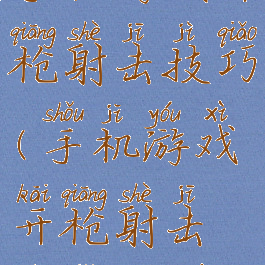 qiāng shè jī jì qiǎo
枪射击技巧
shǒu jī yóu xì
(手机游戏
kāi qiāng shè jī
开枪射击